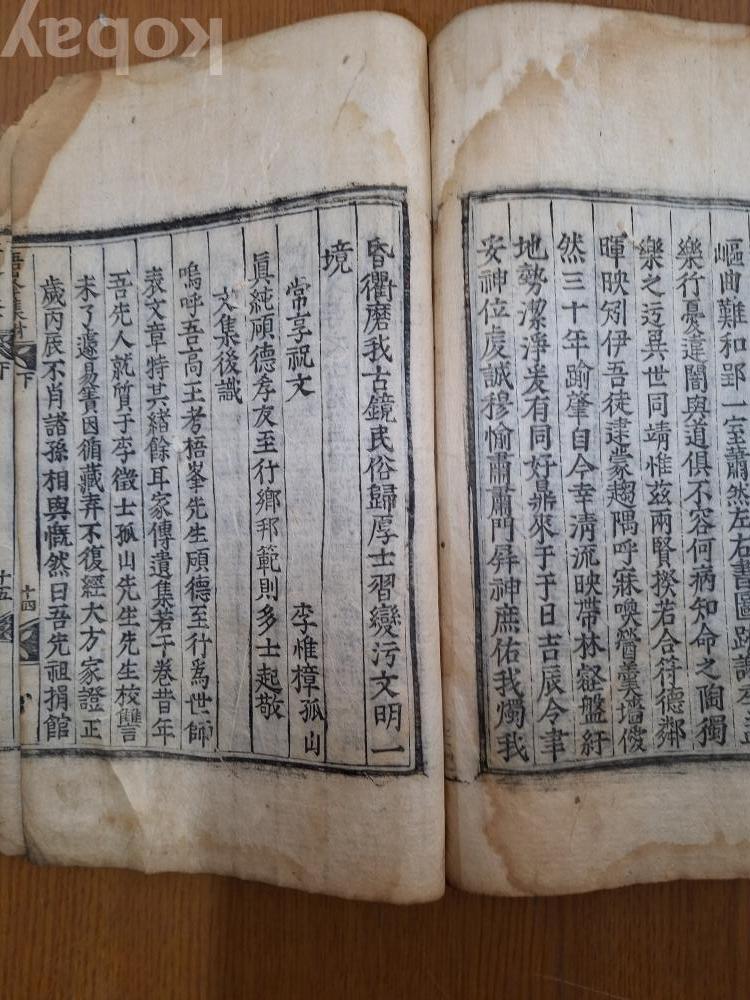 嶇曲難和郢一室蕭然左右書圖
樂行憂違闇與道俱不容何病知命之陶獨
樂之迃異世同靖惟茲兩賢揆若合符德鄰
暉映矧伊吾徒逮蒙趨隅呼寐喚瞥羹墻僾
然三十年踰肇自今幸清流映帶林壑盤紆
地勢潔淨爰有同好鼎來于于日吉辰令聿
安神位虔誠穆愉肅肅門屏神庶佑我燭我
昏衢磨我古鏡民俗歸厚士習變污文明一
境
常享祝文 李惟樟孤山
眞純碩德孝友至行鄉邦範則多士起敬
文集後識
嗚呼吾高王考梧峯先生碩德至行爲世師
表文章特其緖餘耳家傳遺集若干卷昔年
吾先人就質于李徵士孤山先生先生校讐
未了遽易簀因循藏弆不復經大方家證正
歲丙辰不肖諸孫相與慨然曰吾先祖捐館
下
十四
下
十五
kobay